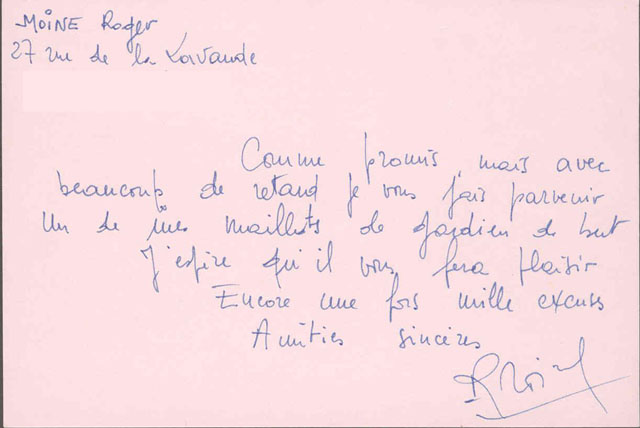 MOINE Roger
27 rue de la Lavande
Comme promis, mais avec
beaucoup de retard je vous fais parvenir
Un de mes maillots de gardien de but
J'espère qu'il vous fera plaisir
Encore une fois mille excuses
Amitiés sincères
RMoine